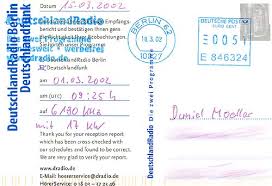 DeutschlandRadio Berlin
Deutschlandfunk
15.03.2002
Empfangs-
bericht und bestätigen Ihnen gern
die Beobachtungen.
unser Programm
dradio.de
Deutschlandfunk
am 01.03.2002
um 09:25 h
auf 6190 kHz
mit 17 kW
Thank you for your reception report
which has been cross-checked with
our schedules and found to be correct.
We are very glad to verify your report.
www.dradio.de
E-Mail: hoererservice@dradio.de
HörerService: 0 18 - 17 21.46
DeutschlandRadio Die zwei Programme
BERLIN 12
18.3.02
10827
DEUTSCHE POST
EURO CENT
0051
E 846324
Daniel Moeller